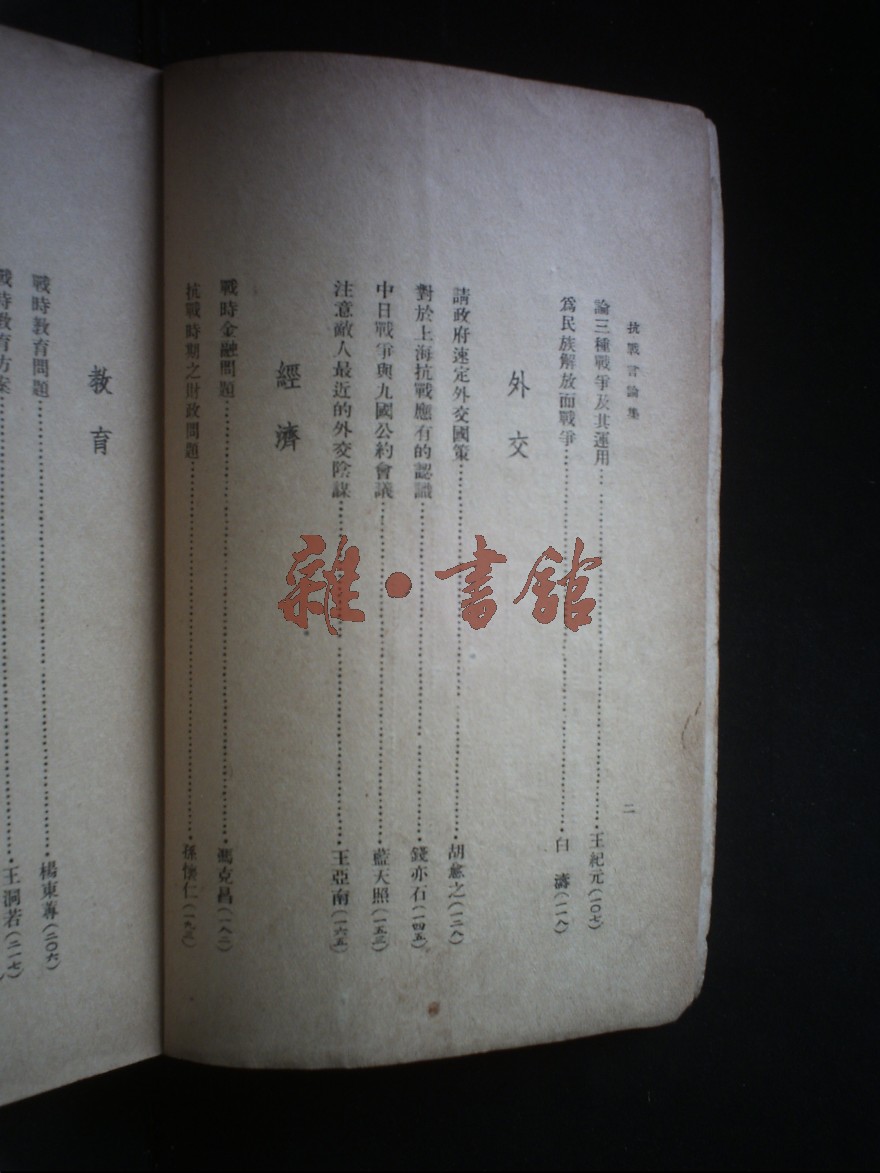 抗戰言論集
二
論三種戰爭及其運用……王紀元(一〇七)
爲民族解放而戰爭……白濤(一一八)
外交
請政府速定外交國策……胡愈之(一二八)
對於上海抗戰應有的認識……錢亦石(一四五)
中日戰爭與九國公約會議……藍天照(一五三)
注意敵人最近的外交陰謀……王亞南(一六五)
經濟
戰時金融問題……馮克昌(一八二)
抗戰時期之財政問題……孫懷仁(一九三)
教育
戰時教育問題……楊東蓴(二〇六)
戰時教育方案……王洞若(二一七)
雜·書館